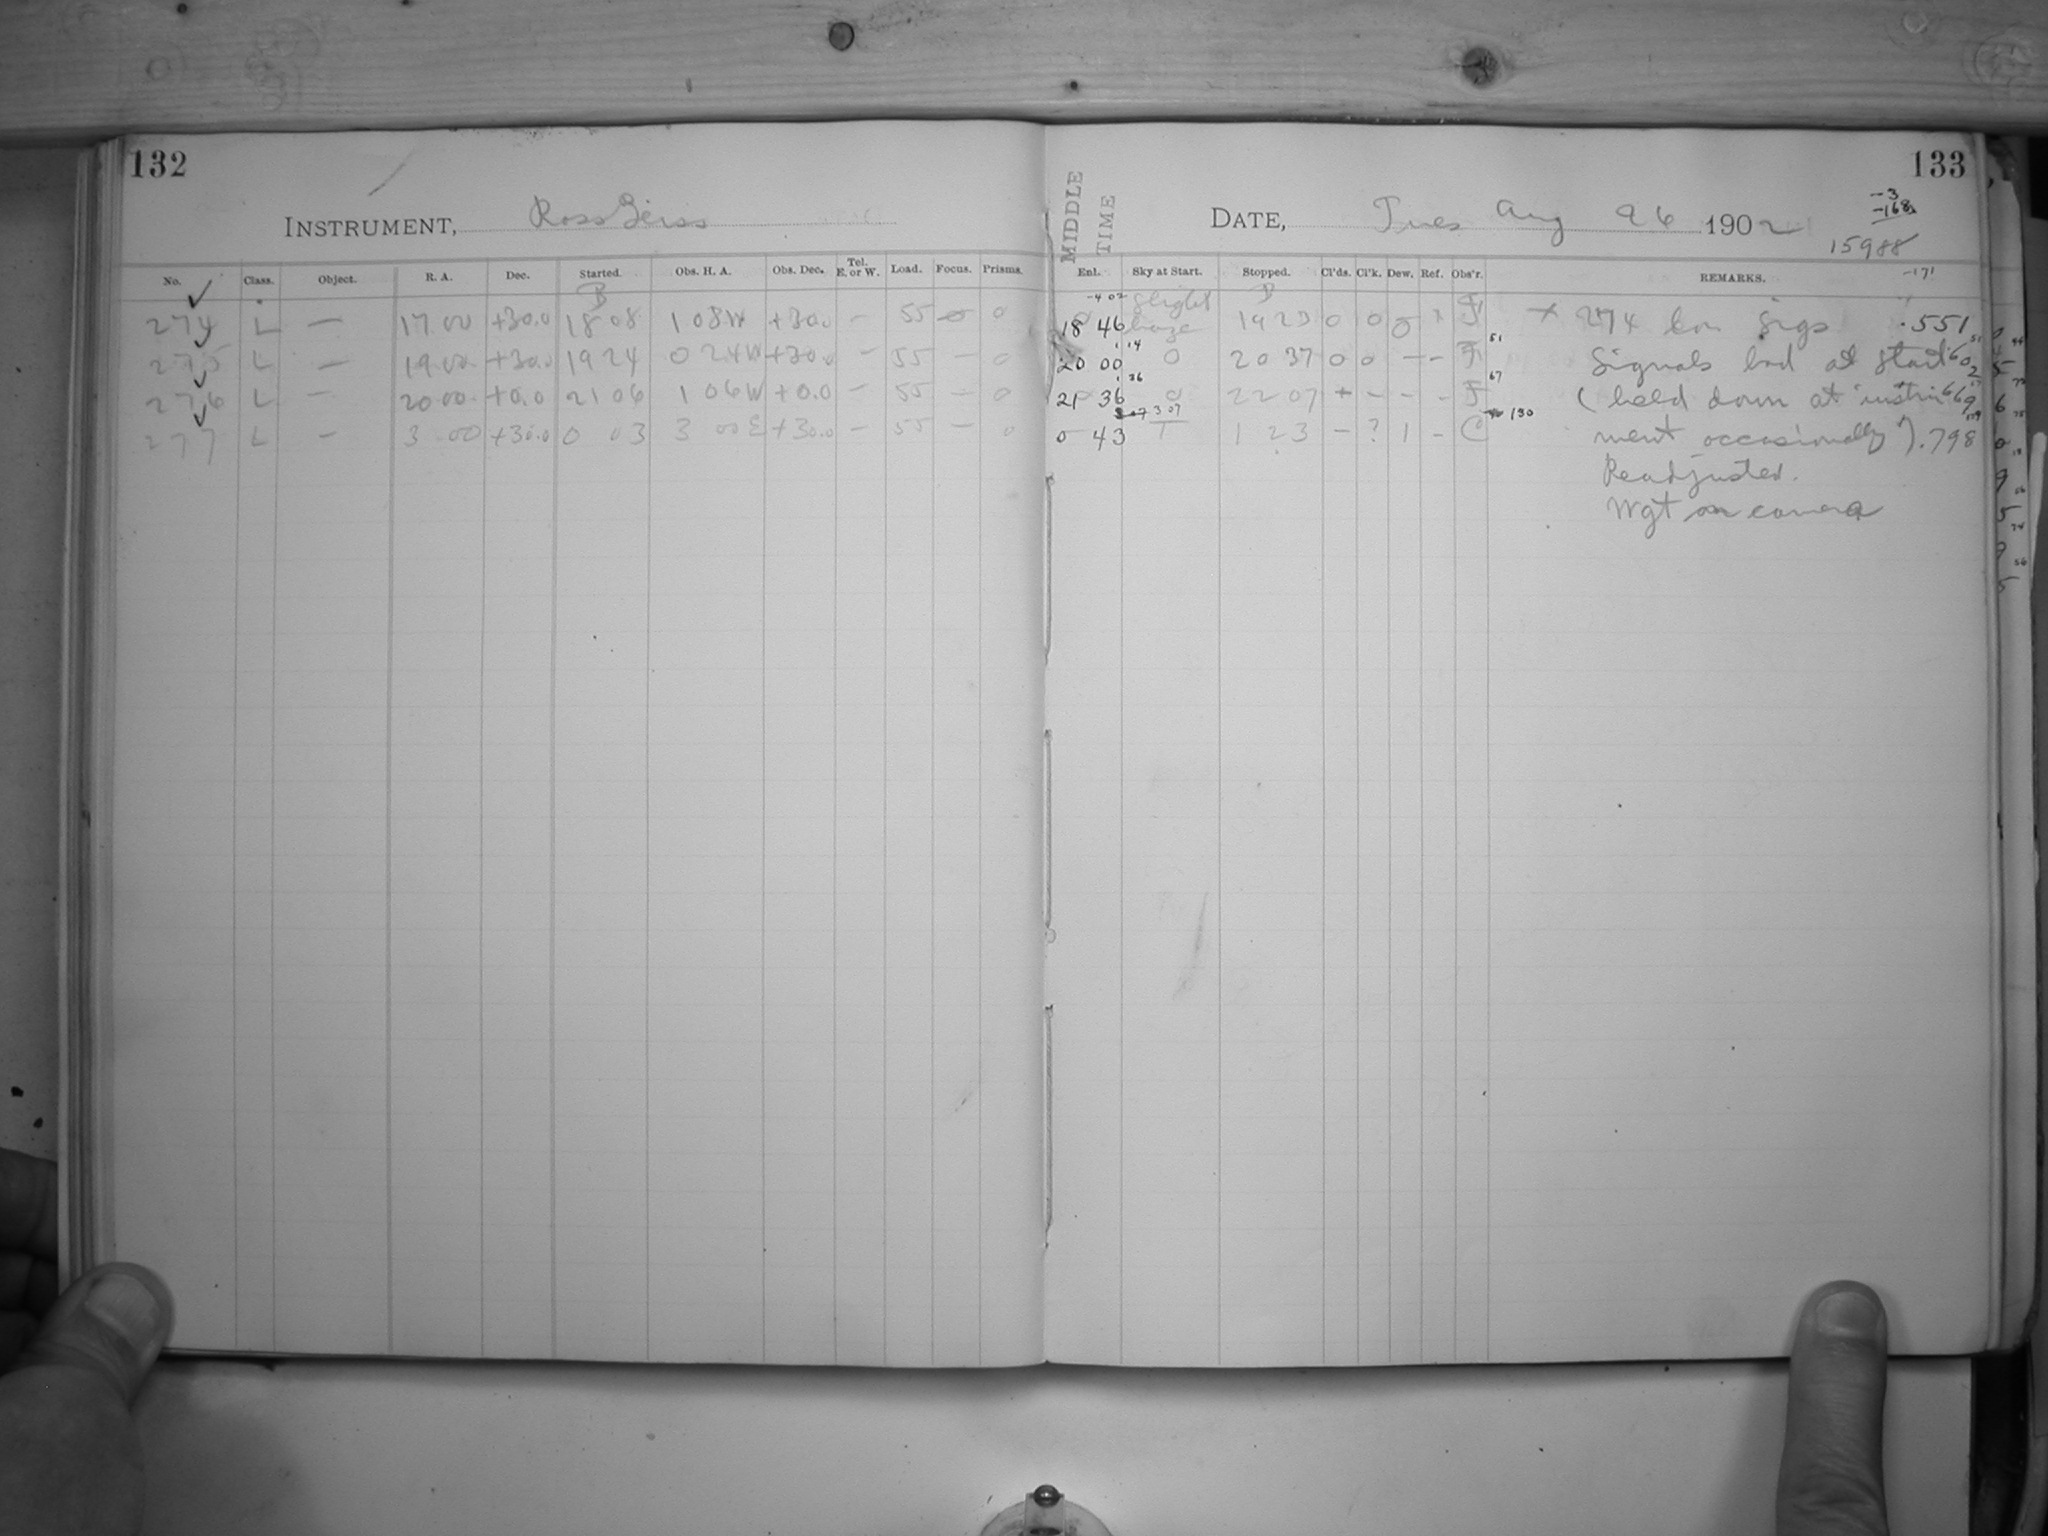 132
133
INSTRUMENT, Ross Zeiss
MIDDLE TIME
DATE, Tues Aug 26 1902
-3
-168
15988
-171
No. Class. Object. R. A. Dec. Started. Obs. H. A. Obs. Dec. Tel. E. or W. Load. Focus. Prisms. Enl. Sky at Start. Stopped. Cl'ds. Cl'k. Dew. Ref. Obs'r. REMARKS.
274 L — 17 00 +30.0 18 08 1 08 W +30.0 — 55 — 0 18 46 slight haze 19 23 0 0 0 F 274 sigs .551
275 L — 19 00 +30.0 19 24 0 24 W +30.0 — 55 — 0 20 00 0 20 37 0 0 — — F Signals bad at start .602
276 L — 20 00 +0.0 21 06 1 06 W +0.0 — 55 — 0 21 36 0 22 07 + — — — F (held down at instru 669
277 L — 3 00 +30.0 0 03 3 00 E +30.0 — 55 — 0 0 43 1 1 23 — ? 1 — C ment occasionally). .798
Readjusted.
Wgt on camera